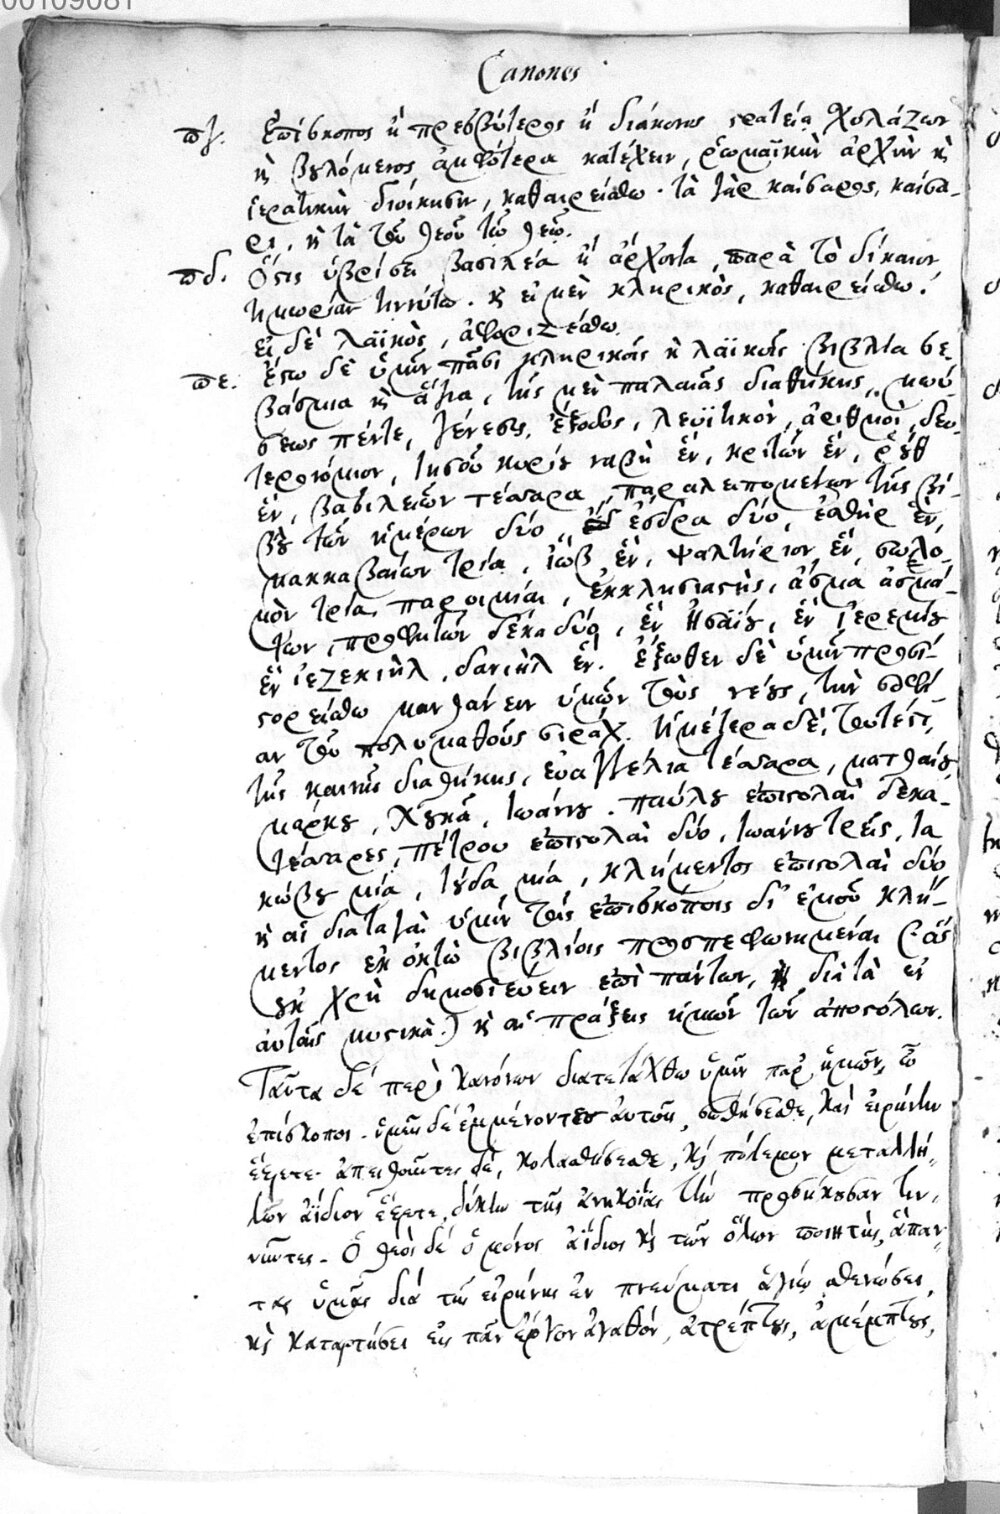 00109081
Canones
πγ. Ἐπίσκοπος ἢ πρεσβύτερος ἢ διάκονος στρατείᾳ σχολάζων
καὶ βουλόμενος ἀμφότερα κατέχειν, ῥωμαϊκὴν ἀρχὴν καὶ
ἱερατικὴν διοίκησιν, καθαιρείσθω· τὰ γὰρ καίσαρος, καίσα-
ρι, καὶ τὰ τοῦ θεοῦ τῷ θεῷ.
πδ. Ὅστις ὑβρίσει βασιλέα ἢ ἄρχοντα, παρὰ τὸ δίκαιον
τιμωρίαν τιννύτω· καὶ εἰ μὲν κληρικὸς, καθαιρείσθω·
εἰ δὲ λαϊκὸς, ἀφοριζέσθω.
πε. ἔστω δὲ ὑμῖν πᾶσι κληρικοῖς καὶ λαϊκοῖς βιβλία σε-
βάσμια καὶ ἅγια, τῆς μὲν παλαιᾶς διαθήκης, μωϋ-
σεως πέντε, γένεσις, ἔξοδος, λευϊτικὸν, ἀριθμοὶ, δευ-
τερονόμιον, ἰησοῦ υἱοῦ ναβῆ ἓν, κριτῶν ἓν, ῥοὺθ
ἓν, βασιλειῶν τέσσαρα, παραλειπομένων τῆς βί-
βλου τῶν ἡμέρων δύο, ἔσδρα δύο, ἐσθὴρ ἓν,
μακκαβαίων τρία, ἰὼβ ἓν, ψαλτήριον ἓν, σωλο-
μὸν τρία, παροιμίαι, ἐκκλησιαστὴς, ἆσμα ἀσμά-
των, προφητῶν δέκα δύο, ἓν ἠσαΐου, ἓν ἱερεμίου
ἓν ἰεζεκιὴλ, δανιὴλ ἓν. ἔξωθεν δὲ ὑμῖν προσι-
στορείσθω μανθάνειν ὑμῶν τοὺς νέους, τὴν σοφί-
αν τοῦ πολυμαθοῦς σιράχ. ἡμέτερα δὲ, τουτέστι,
τῆς καινῆς διαθήκης, εὐαγγέλια τέσσαρα, ματθαίου
μάρκου, λουκᾶ, ἰωάννου. παύλου ἐπιστολαὶ δέκα-
τέσσαρες, πέτρου ἐπιστολαὶ δύο, ἰωάννου τρεῖς, ἰα
κώβου μία, ἰούδα μία, κλήμεντος ἐπιστολαὶ δύο
καὶ αἱ διαταγαὶ ὑμῖν τοῖς ἐπισκόποις δι' ἐμοῦ κλή-
μεντος ἐν ὀκτὼ βιβλίοις προσπεφωνημέναι (ἃς
οὐ χρὴ δημοσιεύειν ἐπὶ πάντων, διὰ τὰ ἐν
αὐταῖς μυστικὰ.) καὶ αἱ πράξεις ἡμῶν τῶν ἀποστόλων.
Ταῦτα δὲ περὶ κανόνων διατετάχθω ὑμῖν παρ' ἡμῶν, ὦ
ἐπίσκοποι. ὑμεῖς δὲ ἐμμένοντες αὐτοῖς, σωθήσεσθε, καὶ εἰρήνην
ἕξετε· ἀπειθοῦντες δὲ, κολασθήσεσθε, καὶ πόλεμον μεταλλή-
λων ἀΐδιον ἕξετε, δίκην τῆς ἀνηκοΐας τὴν προσήκουσαν τιν-
νῦντες. Ὁ θεὸς δὲ ὁ μόνος ἀΐδιος καὶ τῶν ὅλων ποιητὴς, ἅπαν-
τας ὑμᾶς διὰ τῆς εἰρήνης ἐν πνεύματι ἁγίῳ σθενώσει,
καὶ καταρτίσει εἰς πᾶν ἔργον ἀγαθόν, ἀτρέπτους, ἀμέμπτους,